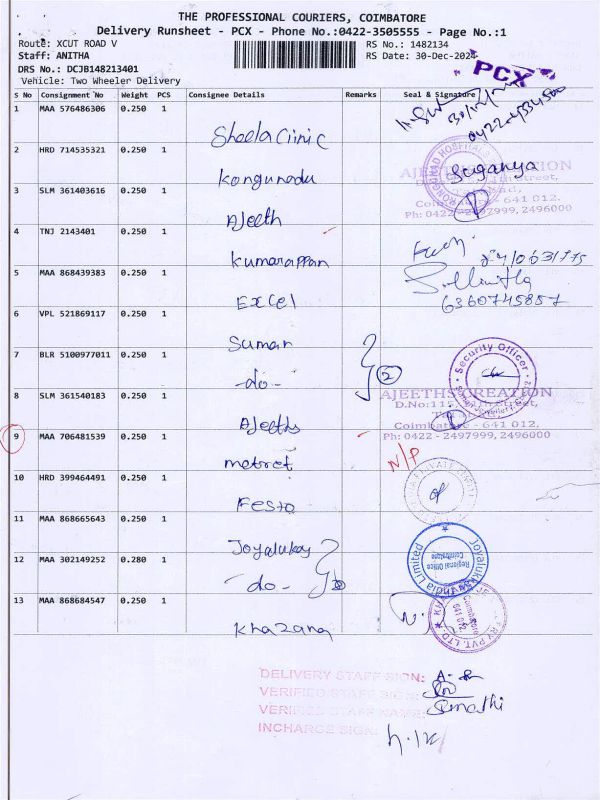 THE PROFESSIONAL COURIERS, COIMBATORE
Delivery Runsheet - PCX - Phone No.:0422-3505555 - Page No.:1
Route: XCUT ROAD V
RS No.: 1482134
Staff: ANITHA
RS Date: 30-Dec-2024
DRS No.: DCJB148213401
Vehicle: Two Wheeler Delivery
PCX
S No Consignment No Weight PCS Consignee Details Remarks Seal & Signature
1 MAA 576486306 0.250 1
Sheela Clinic
2 HRD 714535321 0.250 1
Kongunadu
Suganya
3 SLM 361403616 0.250 1
Ajeeth
AJEETHS CREATION
Coimbatore - 641 012.
Ph: 0422 - 2497999, 2496000
4 TNJ 2143401 0.250 1
Kumarappan
5 MAA 868439383 0.250 1
Excel
6360745857
6 VPL 521869117 0.250 1
Suman
7 BLR 5100977011 0.250 1
-do-
2
Security Officer
8 SLM 361540183 0.250 1
Ajeeths
AJEETHS CREATION
Coimbatore - 641 012.
Ph: 0422 - 2497999, 2496000
9 MAA 706481539 0.250 1
metret
N/P
10 HRD 399464491 0.250 1
Festo
11 MAA 868665643 0.250 1
Joyalukas
12 MAA 302149252 0.280 1
-do-
Joyalukkas India Limited
Regional Office
Coimbatore
13 MAA 868684547 0.250 1
Khazana
Coimbatore
641 012
DELIVERY STAFF SIGN:
VERIFIED STAFF SIGN:
VERIFIED STAFF NAME:
INCHARGE SIGN: